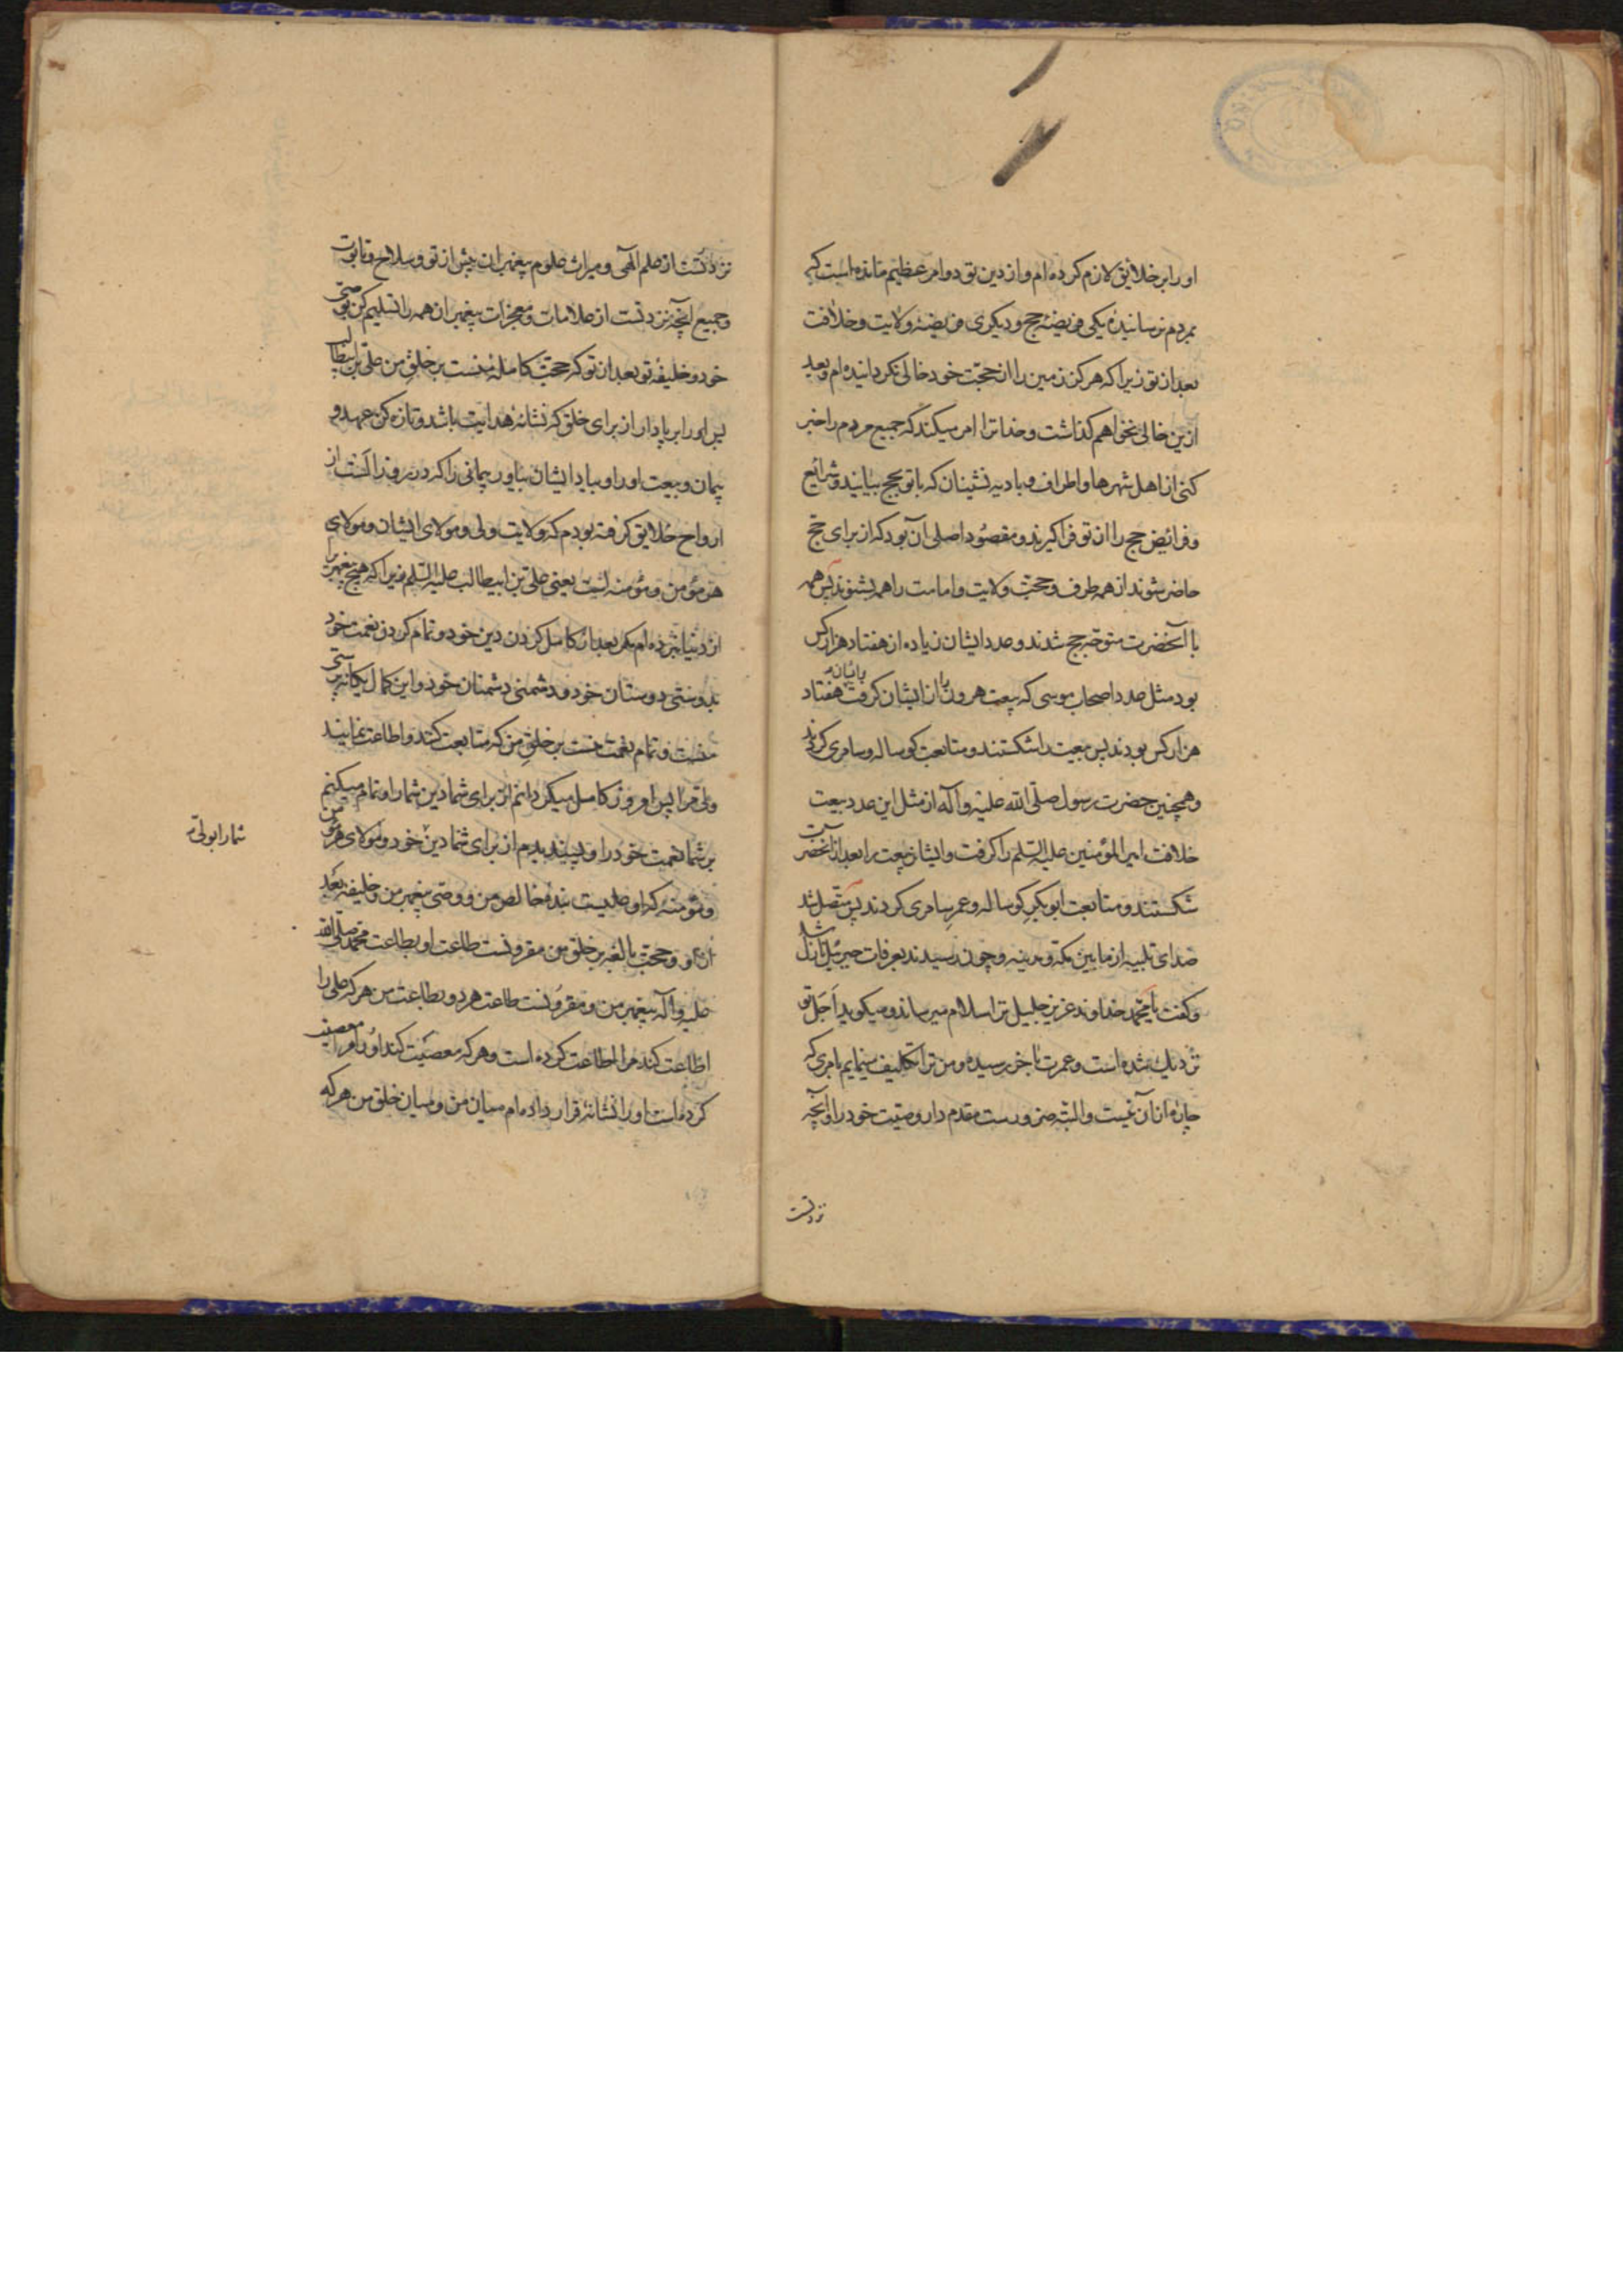 او را بر خلایق لازم کرده‌ام و از دین تو دو امر عظیم مانده است که
بمردم نرسانیدهٔ یکی فریضهٔ حج و دیگری فریضهٔ ولایت و خلافت
بعد از تو زیرا که هرگز زمین را از حجّت خود خالی نگردانیده‌ام و بعد
ازین خالی نخواهم گذاشت و خدا ترا امر میکند که جمیع مردم را خبر
کنی از اهل شهرها و اطراف و بادیه نشینان که با تو بحج بیایند و شرایع
و فرائض حج را از تو فرا گیرند و مقصود اصلی آن بود که از برای حج
حاضر شوند از همه طرف و حجّت ولایت و امامت را همه بشنوند پس همه
با آنحضرت متوجّه حج شدند و عدد ایشان زیاده از هفتاد هزار کس
بود مثل عدد اصحاب موسی که بیعت هرون را از ایشان گرفت هفتاد
هزار کس بودند پس بیعت را شکستند و متابعت گوساله و سامری کردند
و همچنین حضرت رسول صلّی الله علیه و آله از مثل این عدد بیعت
خلافت امیر المؤمنین علیه السّلم را گرفت و ایشان بیعت را بعد از آنحضرت
شکستند و متابعت ابوبکر گوساله و عمر سامری کردند پس متّصل شد
صدای تلبیه از مابین مکّه و مدینه و چون رسیدند بعرفات جبرئیل نازل شد
و گفت یا محمّد خداوند عزیز جلیل ترا سلام میرساند و میگوید اَجَل تو
نزدیک شده است و عمرت بآخر رسیده و من ترا تکلیف مینمایم بامری که
چاره از آن نیست و البتّه ضرورست مقدم دار وصیّت خود را و آنچه
نزد تست
نزد تست از علم الهی و میراث علوم پیغمبران پیش از تو و سلاح و تابوت
و جمیع آنچه نزد تست از علامات و معجزات پیغمبران همه را تسلیم کن بوصی
خود و خلیفه تو بعد از تو که حجّت کاملهٔ منست بر خلق من علی بن ابیطالب
پس او را بر پا دار از برای خلق که نشانهٔ هدایت باشد و تازه کن عهد و
پیمان و بیعت او را و بیاد ایشان بیاور پیمانی را که در روز الست از
ارواح خلایق گرفته بودم که ولایت ولی و مولای ایشان و مولای
هر مؤمن و مؤمنه است یعنی علی بن ابیطالب علیه السّلم زیرا که هیچ پیغمبر را
از دنیا نبرده‌ام مگر بعد از کامل کردن دین خود و تمام کردن نعمت خود
بدوستی دوستان خود و دشمنی دشمنان خود و این کمال یگانه پرستی
منست و تمام نعمت منست بر خلق من که متابعت کنند و اطاعت نمایند
ولی مرا پس امروز کامل میگردانم از برای شما دین شما را و تمام میکنم
بر شما نعمت خود را و پسندیدم از برای شما دین خود و مولای هر مؤمن
شما را بولی
و مؤمنه که او علیست بندهٔ خالص من و وصّی پیغمبر من و خلیفه بعد
از او و حجّت بالغه بر خلق من مقرونست طاعت او بطاعت محمّد صلّی الله
علیه و آله پیغمبر من و مقرونست طاعت هر دو بطاعت من هر که علی را
اطاعت کند مرا اطاعت کرده است و هر که معصیت کند او را مرا معصیت
کرده است او را نشانهٔ قرار داده‌ام میان من و میان خلق من هر که